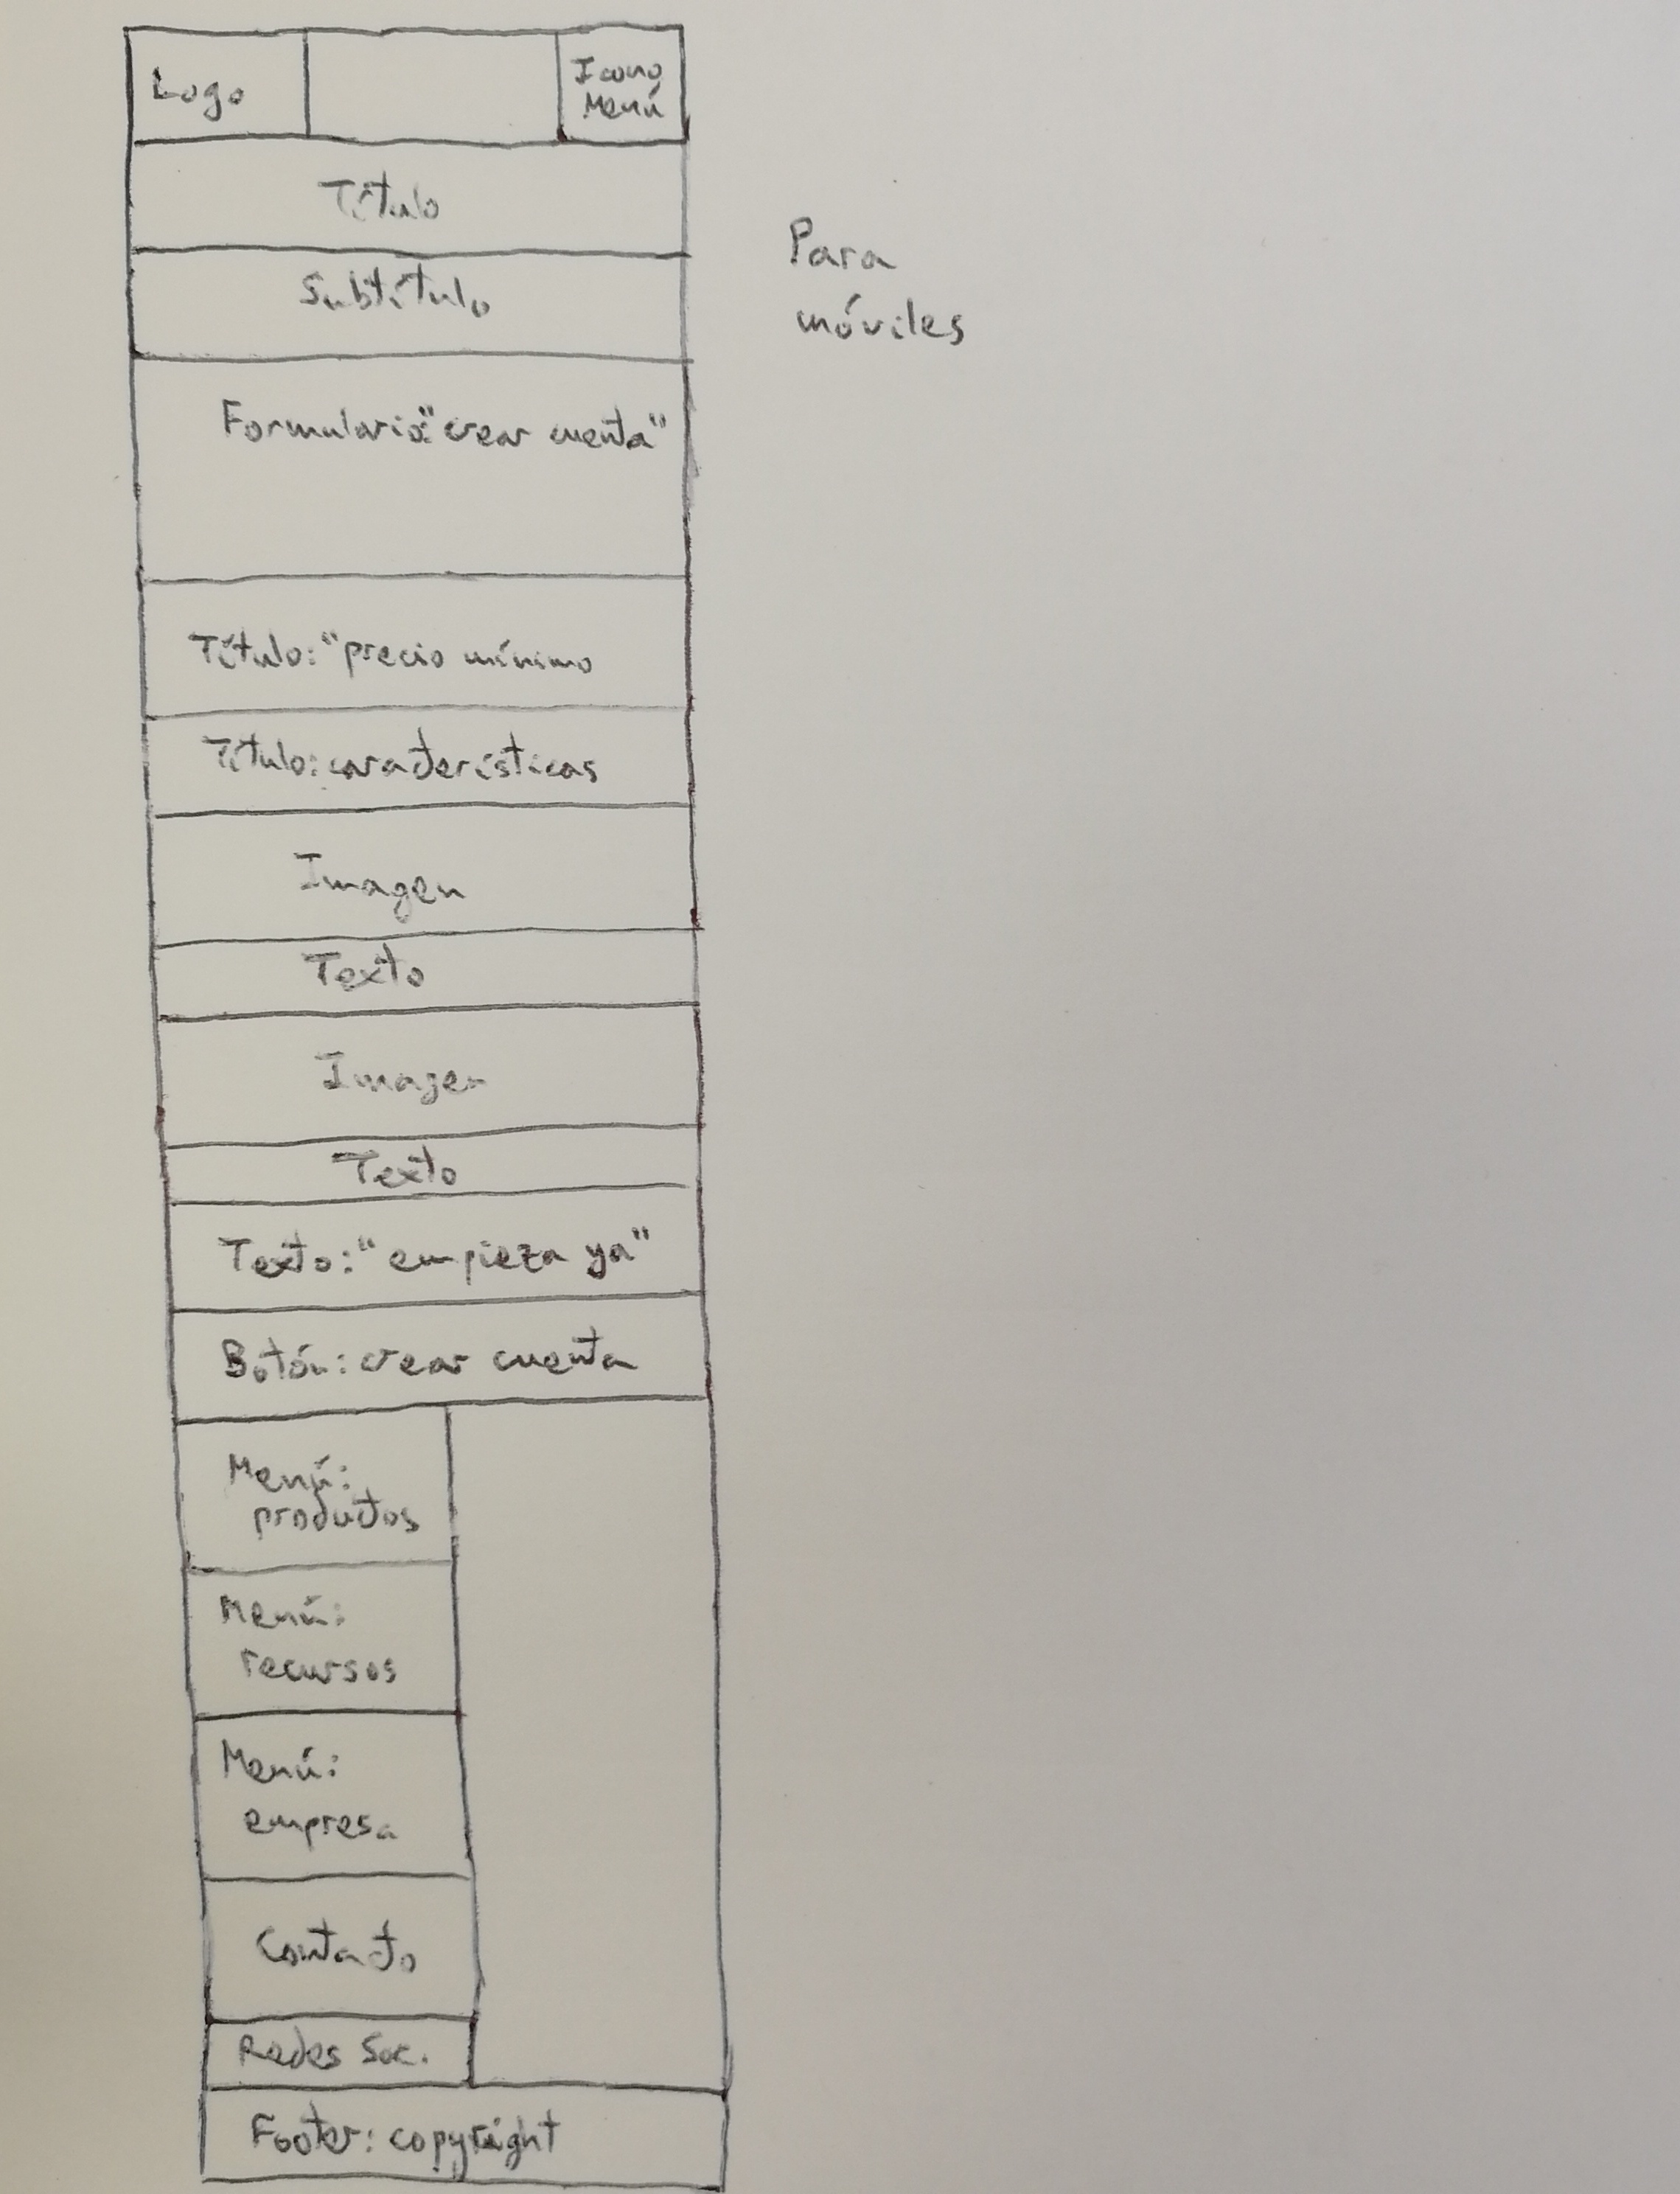 Logo
Icono
Menú
Título
Subtítulo
Para
móviles
Formulario: "crear cuenta"
Título: "precio mínimo
Título: características
Imagen
Texto
Imagen
Texto
Texto: "empieza ya"
Botón: crear cuenta
Menú:
productos
Menú:
recursos
Menú:
empresa
Contacto
Redes Soc.
Footer: copyright